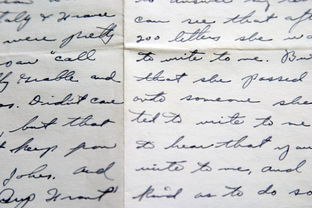 were pretty
can "call
Grable and
os. Didn't care
, but that
keep from
jokes. and
"Guy
can see that aft
200 letters she wa
to write to me. Bu
that she passed
onto someone she
ted to write to me
to hear that you
write to me, and
kind as to do so